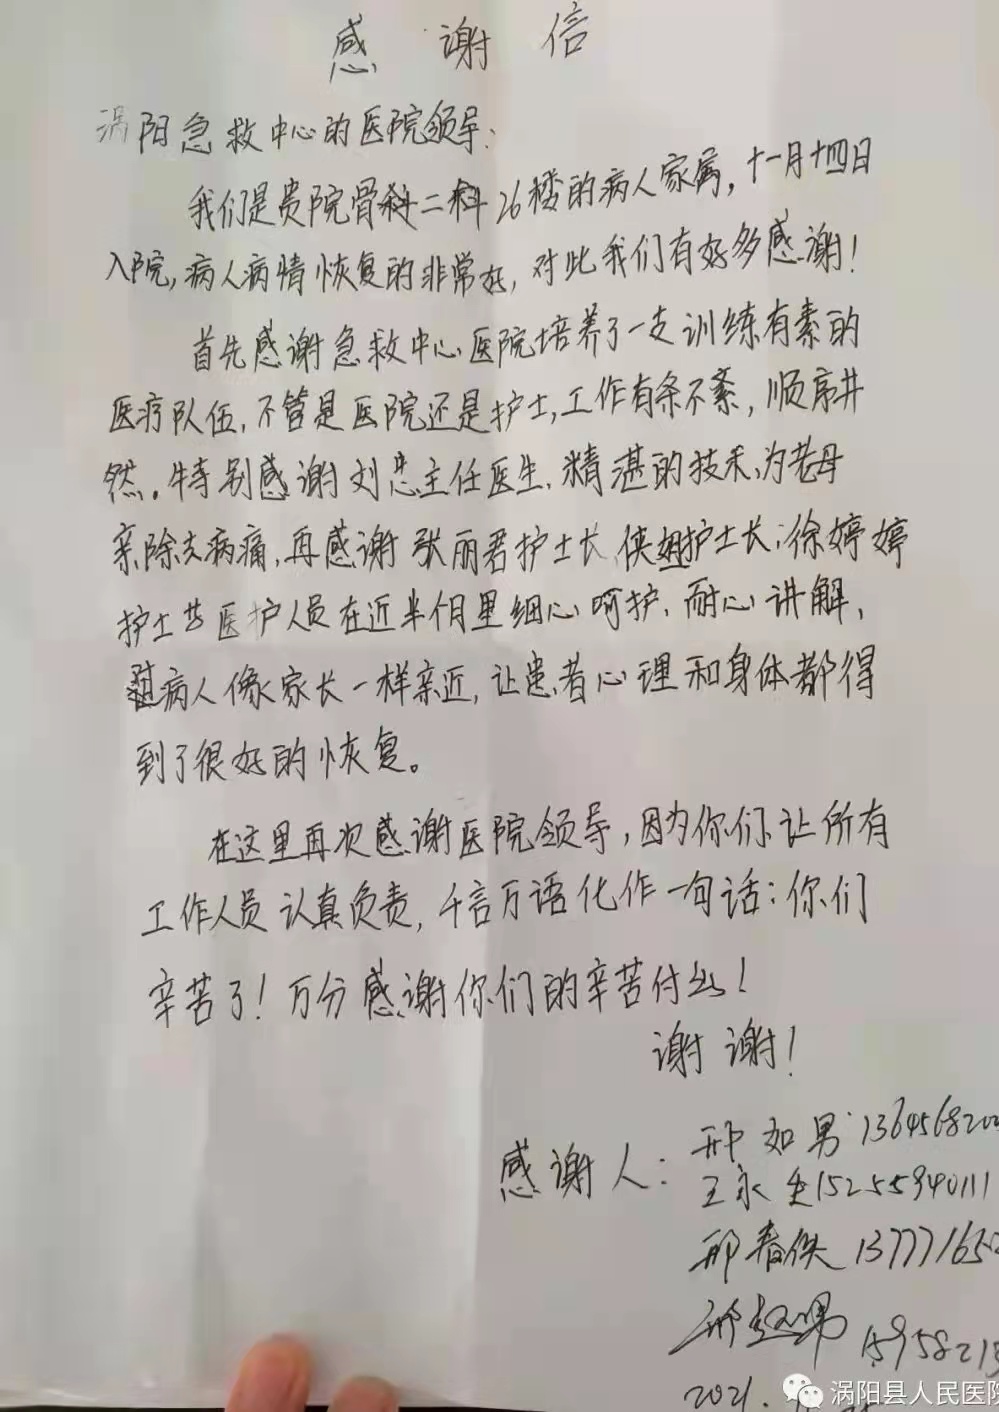 感谢信
涡阳急救中心的医院领导:
我们是贵院骨科二科26楼的病人家属,十一月十四日
入院,病人病情恢复的非常好,对此我们有好多感谢!
首先感谢急救中心医院培养了一支训练有素的
医疗队伍,不管是医院还是护士,工作有条不紊,顺序井
然。特别感谢刘忠主任医生,精湛的技术,为老母
亲除去病痛,再感谢张丽君护士长,侠护士长;徐婷婷
护士等医护人员在近半个月里细心呵护,耐心讲解,
病人像家长一样亲近,让患者心理和身体都得
到了很好的恢复。
在这里再次感谢医院领导,因为你们让所有
工作人员认真负责,千言万语化作一句话:你们
辛苦了!万分感谢你们的辛苦付出!
谢谢!
感谢人:邢如男 136456820
王永 15255940111
邢春侠 137771652
邢超男 159582
2021.
涡阳县人民医院